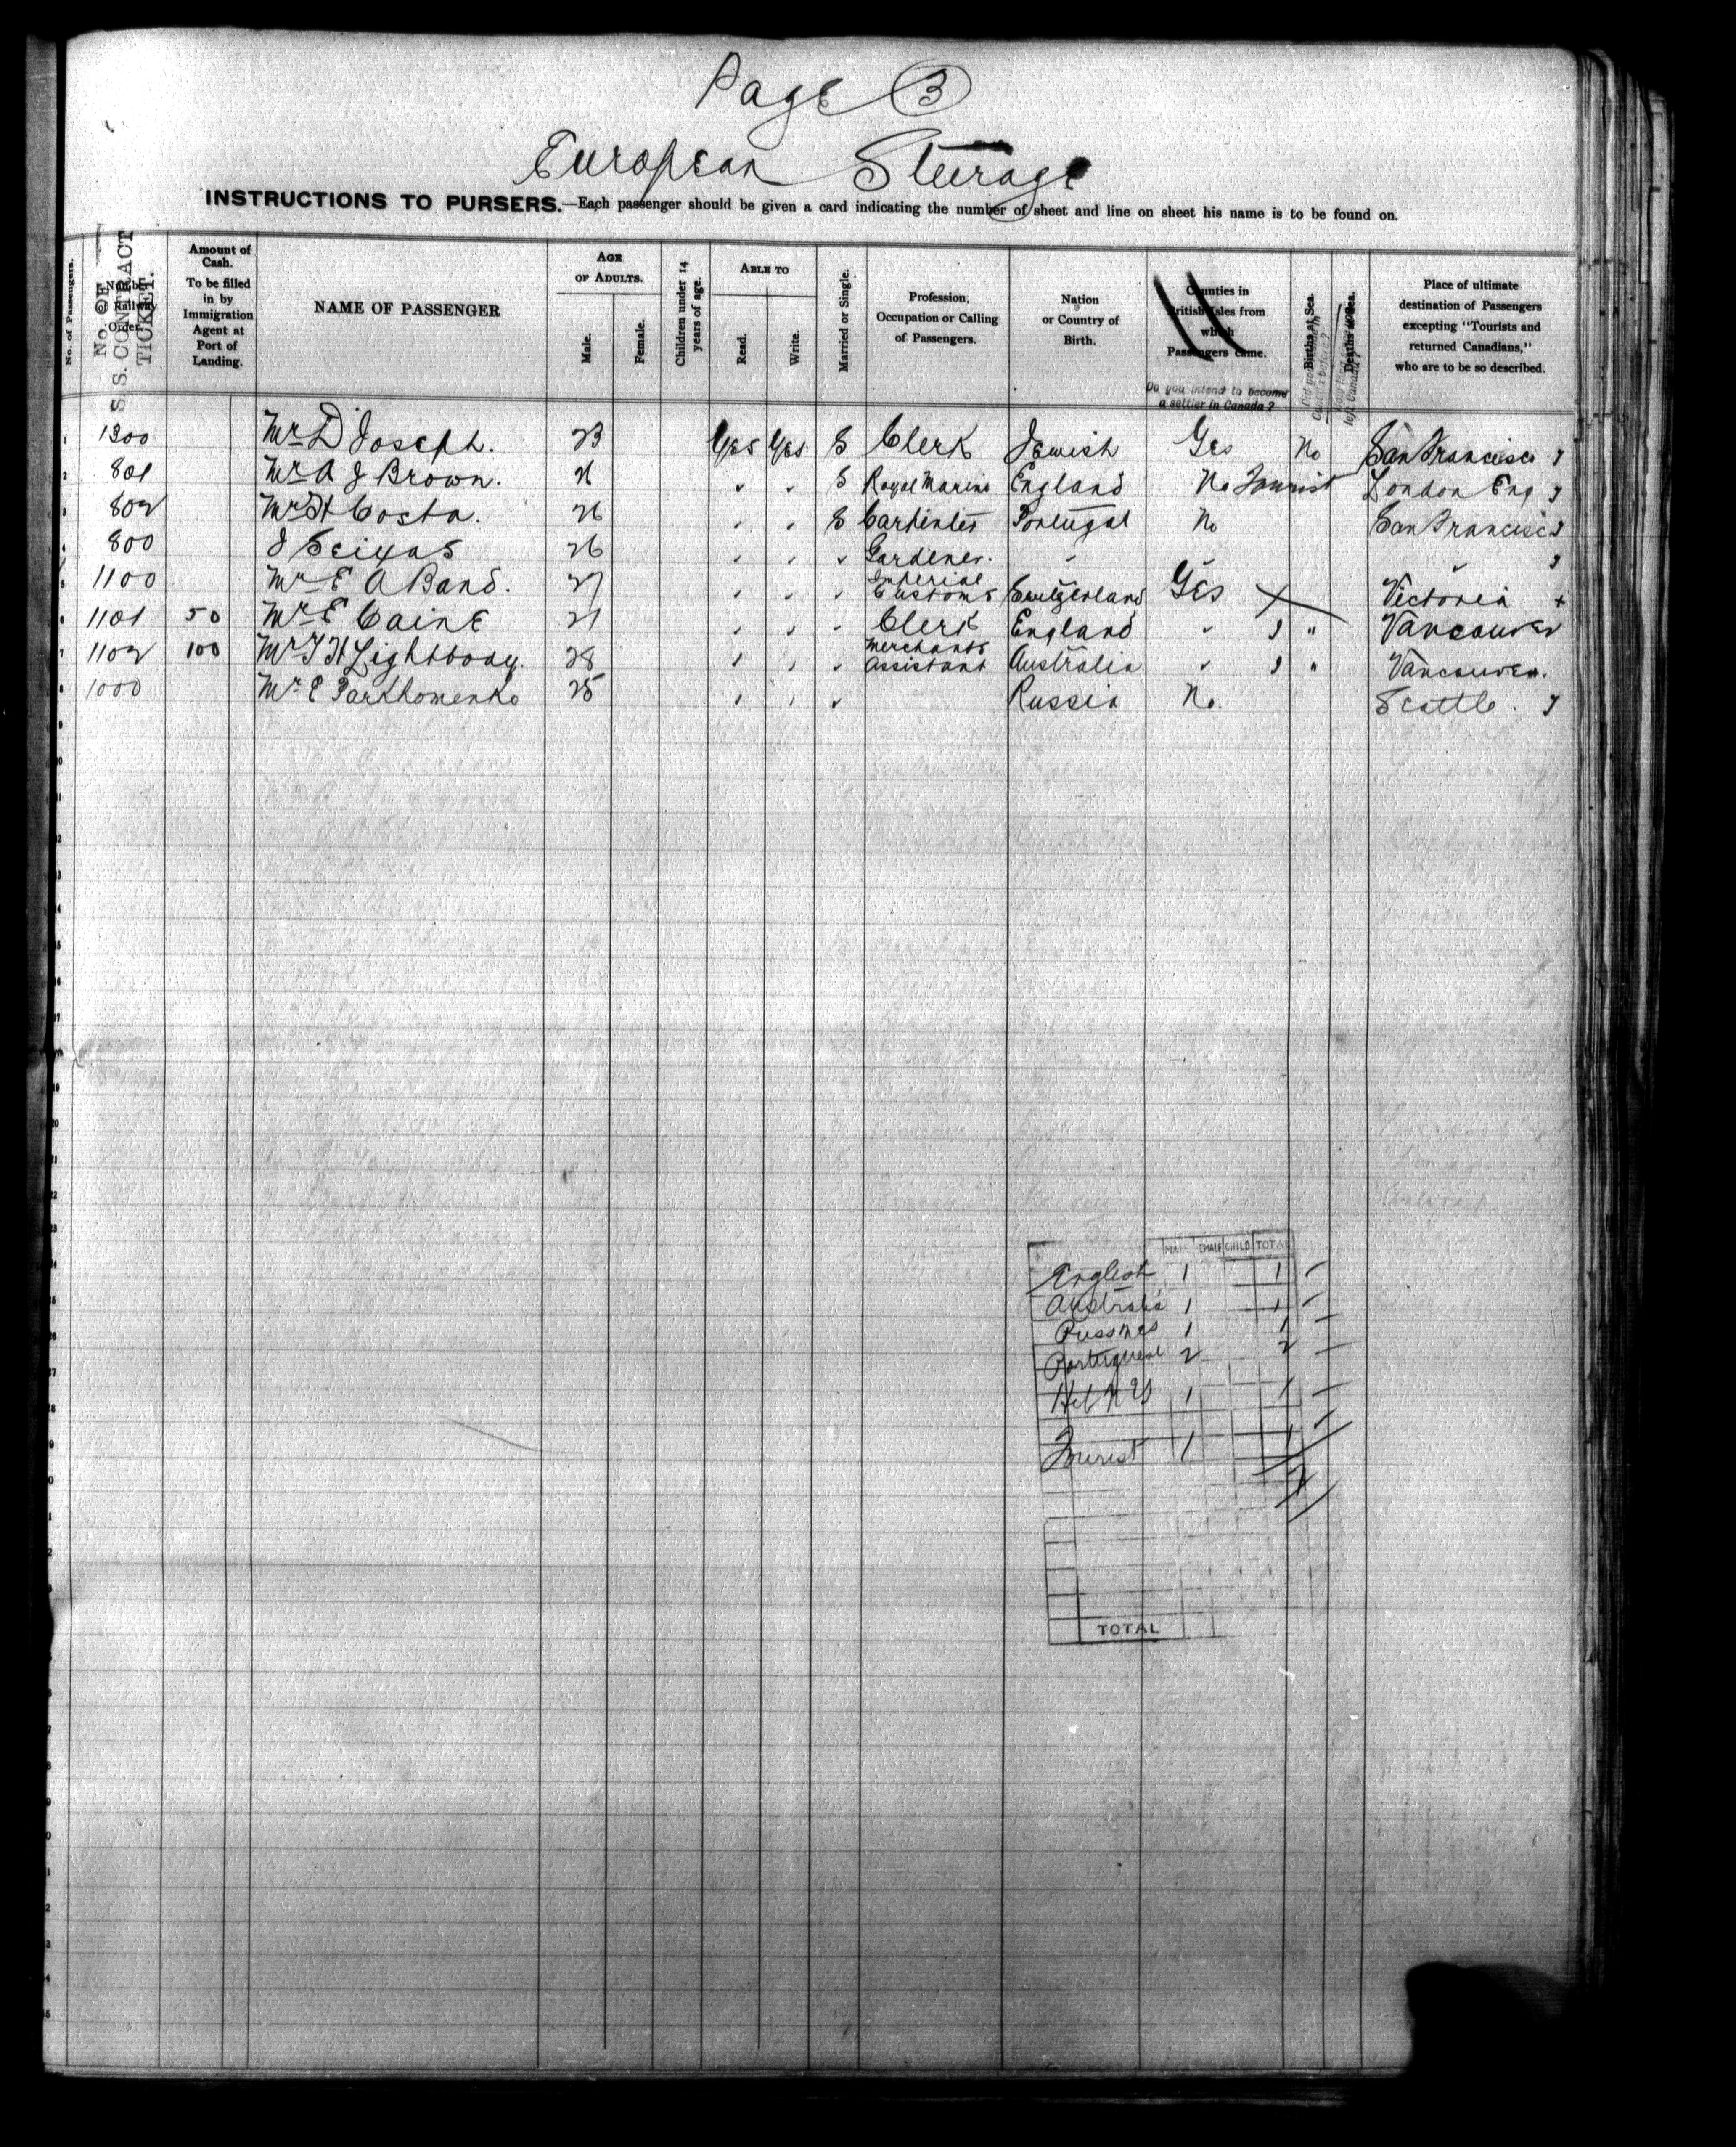 Page 3
European Steerage
INSTRUCTIONS TO PURSERS.—Each passenger should be given a card indicating the number of sheet and line on sheet his name is to be found on.
No. of Passengers.
No. OF S. S. CONTRACT TICKET.
Amount of Cash.
To be filled in by Immigration Agent at Port of Landing.
NAME OF PASSENGER
AGE OF ADULTS.
Male.
Female.
Children under 14 years of age.
ABLE TO
Read.
Write.
Married or Single.
Profession, Occupation or Calling of Passengers.
Nation or Country of Birth.
Counties in British Isles from which Passengers came.
Do you intend to become a settler in Canada?
Births at Sea.
Deaths at Sea.
Place of ultimate destination of Passengers excepting "Tourists and returned Canadians," who are to be so described.
1 1300 Mr D Joseph. 23 Yes Yes S Clerk Jewish Yes No San Francisco
2 801 Mr A J Brown. 21 " " S Royal Marine England No Tourist London Eng
3 802 Mr H Costa. 26 " " S Carpenter Portugal No San Francisco
4 800 J Seixas 26 " " " Gardener. " " "
5 1100 Mr E A Band. 27 " " " Imperial Customs Switzerland Yes X Victoria +
6 1101 50 Mr E Caine 21 " " " Clerk England " " Vancouver
7 1102 100 Mr T H Lightbody. 28 " " " Merchants Assistant Australia " " Vancouver.
8 1000 Mr E Parkhomenko 25 " " " Russia No. Seattle.
MALE FEMALE CHILD TOTAL
English 1 1
Australia 1 1
1 1
Portuguese 2 2
1 1
Tourist 1 1
7
TOTAL